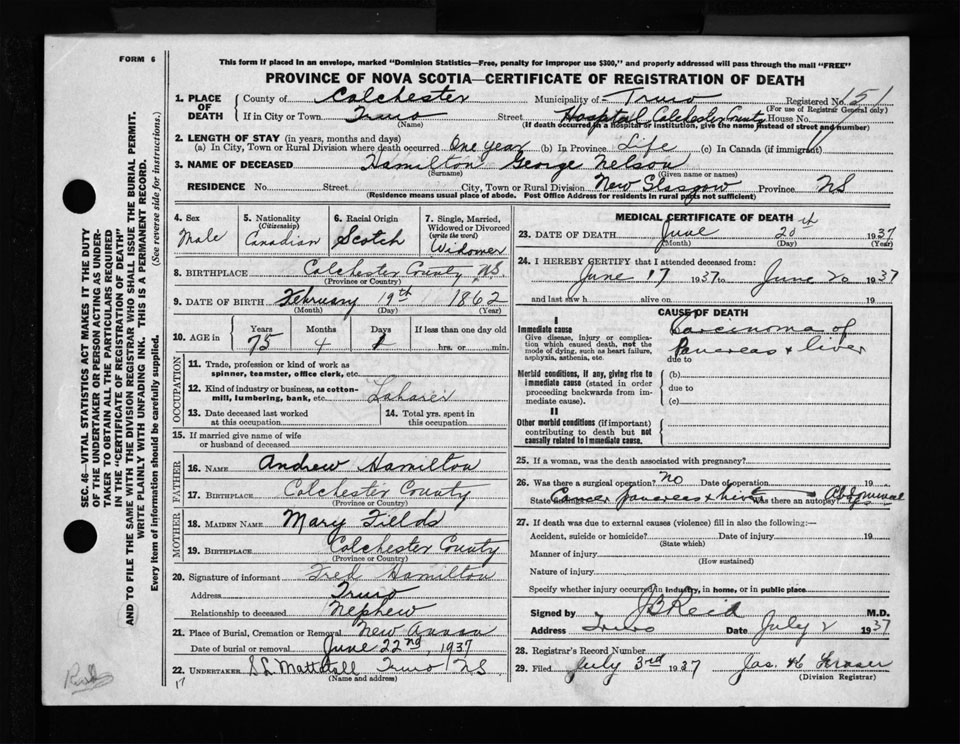 FORM 6
This form if placed in an envelope, marked "Dominion Statistics—Free, penalty for improper use $300," and properly addressed will pass through the mail "FREE"
PROVINCE OF NOVA SCOTIA—CERTIFICATE OF REGISTRATION OF DEATH
SEC. 46—VITAL STATISTICS ACT MAKES IT THE DUTY
OF THE UNDERTAKER OR PERSON ACTING AS UNDER-
TAKER TO OBTAIN ALL THE PARTICULARS REQUIRED
IN THE "CERTIFICATE OF REGISTRATION OF DEATH"
AND TO FILE THE SAME WITH THE DIVISION REGISTRAR WHO SHALL ISSUE THE BURIAL PERMIT.
WRITE PLAINLY WITH UNFADING INK. THIS IS A PERMANENT RECORD.
Every item of information should be carefully supplied. (See reverse side for instructions.)
1. PLACE OF DEATH County of Colchester Municipality of Truro Registered No. 151
(For use of Registrar General only)
If in City or Town Truro Street Hospital Colchester County House No.
(Name) (If death occurred in a hospital or institution, give the name instead of street and number)
2. LENGTH OF STAY (in years, months and days)
(a) In City, Town or Rural Division where death occurred One year (b) In Province Life (c) In Canada (if immigrant)
3. NAME OF DECEASED Hamilton George Nelson
(Surname) (Given name or names)
RESIDENCE No. Street City, Town or Rural Division New Glasgow Province NS
(Residence means usual place of abode. Post Office Address for residents in rural parts not sufficient)
4. Sex Male
5. Nationality (Citizenship) Canadian
6. Racial Origin Scotch
7. Single, Married, Widowed or Divorced (write the word) Widower
8. BIRTHPLACE Colchester County N.S.
(Province or Country)
9. DATE OF BIRTH February 19th 1862
(Month) (Day) (Year)
10. AGE in Years 75 Months 4 Days 1 If less than one day old
hrs. or min.
OCCUPATION
11. Trade, profession or kind of work as spinner, teamster, office clerk, etc.
12. Kind of industry or business, as cotton-mill, lumbering, bank, etc. Laborer
13. Date deceased last worked at this occupation
14. Total yrs. spent in this occupation
15. If married give name of wife or husband of deceased
FATHER
16. NAME Andrew Hamilton
17. BIRTHPLACE Colchester County
(Province or Country)
MOTHER
18. MAIDEN NAME Mary Fields
19. BIRTHPLACE Colchester County
(Province or Country)
20. Signature of informant Fred Hamilton
Address Truro
Relationship to deceased Nephew
21. Place of Burial, Cremation or Removal New Annan
Date of burial or removal June 22nd, 1937
22. UNDERTAKER S L Mattatall Truro NS
(Name and address)
17
MEDICAL CERTIFICATE OF DEATH
23. DATE OF DEATH June 20th 1937
(Month) (Day) (Year)
24. I HEREBY CERTIFY that I attended deceased from:
June 17 1937 to June 20 1937
and last saw h alive on 19
CAUSE OF DEATH
I
Immediate cause
Give disease, injury or complication which caused death, not the mode of dying, such as heart failure, asphyxia, asthenia, etc.
Carcinoma of
Pancreas & liver
due to
Morbid conditions, if any, giving rise to immediate cause (stated in order proceeding backwards from immediate cause).
(b)
due to
(c)
II
Other morbid conditions (if important) contributing to death but not causally related to immediate cause.
25. If a woman, was the death associated with pregnancy?
26. Was there a surgical operation? no Date of operation 19
State findings Cancer pancreas & liver Was there an autopsy? Abdominal
27. If death was due to external causes (violence) fill in also the following:—
Accident, suicide or homicide? Date of injury 19
(State which)
Manner of injury
(How sustained)
Nature of injury
Specify whether injury occurred in industry, in home, or in public place
Signed by J B Reid M.D.
Address Truro Date July 2 1937
28. Registrar's Record Number
29. Filed July 3rd 1937 Jas. H Fraser
(Division Registrar)